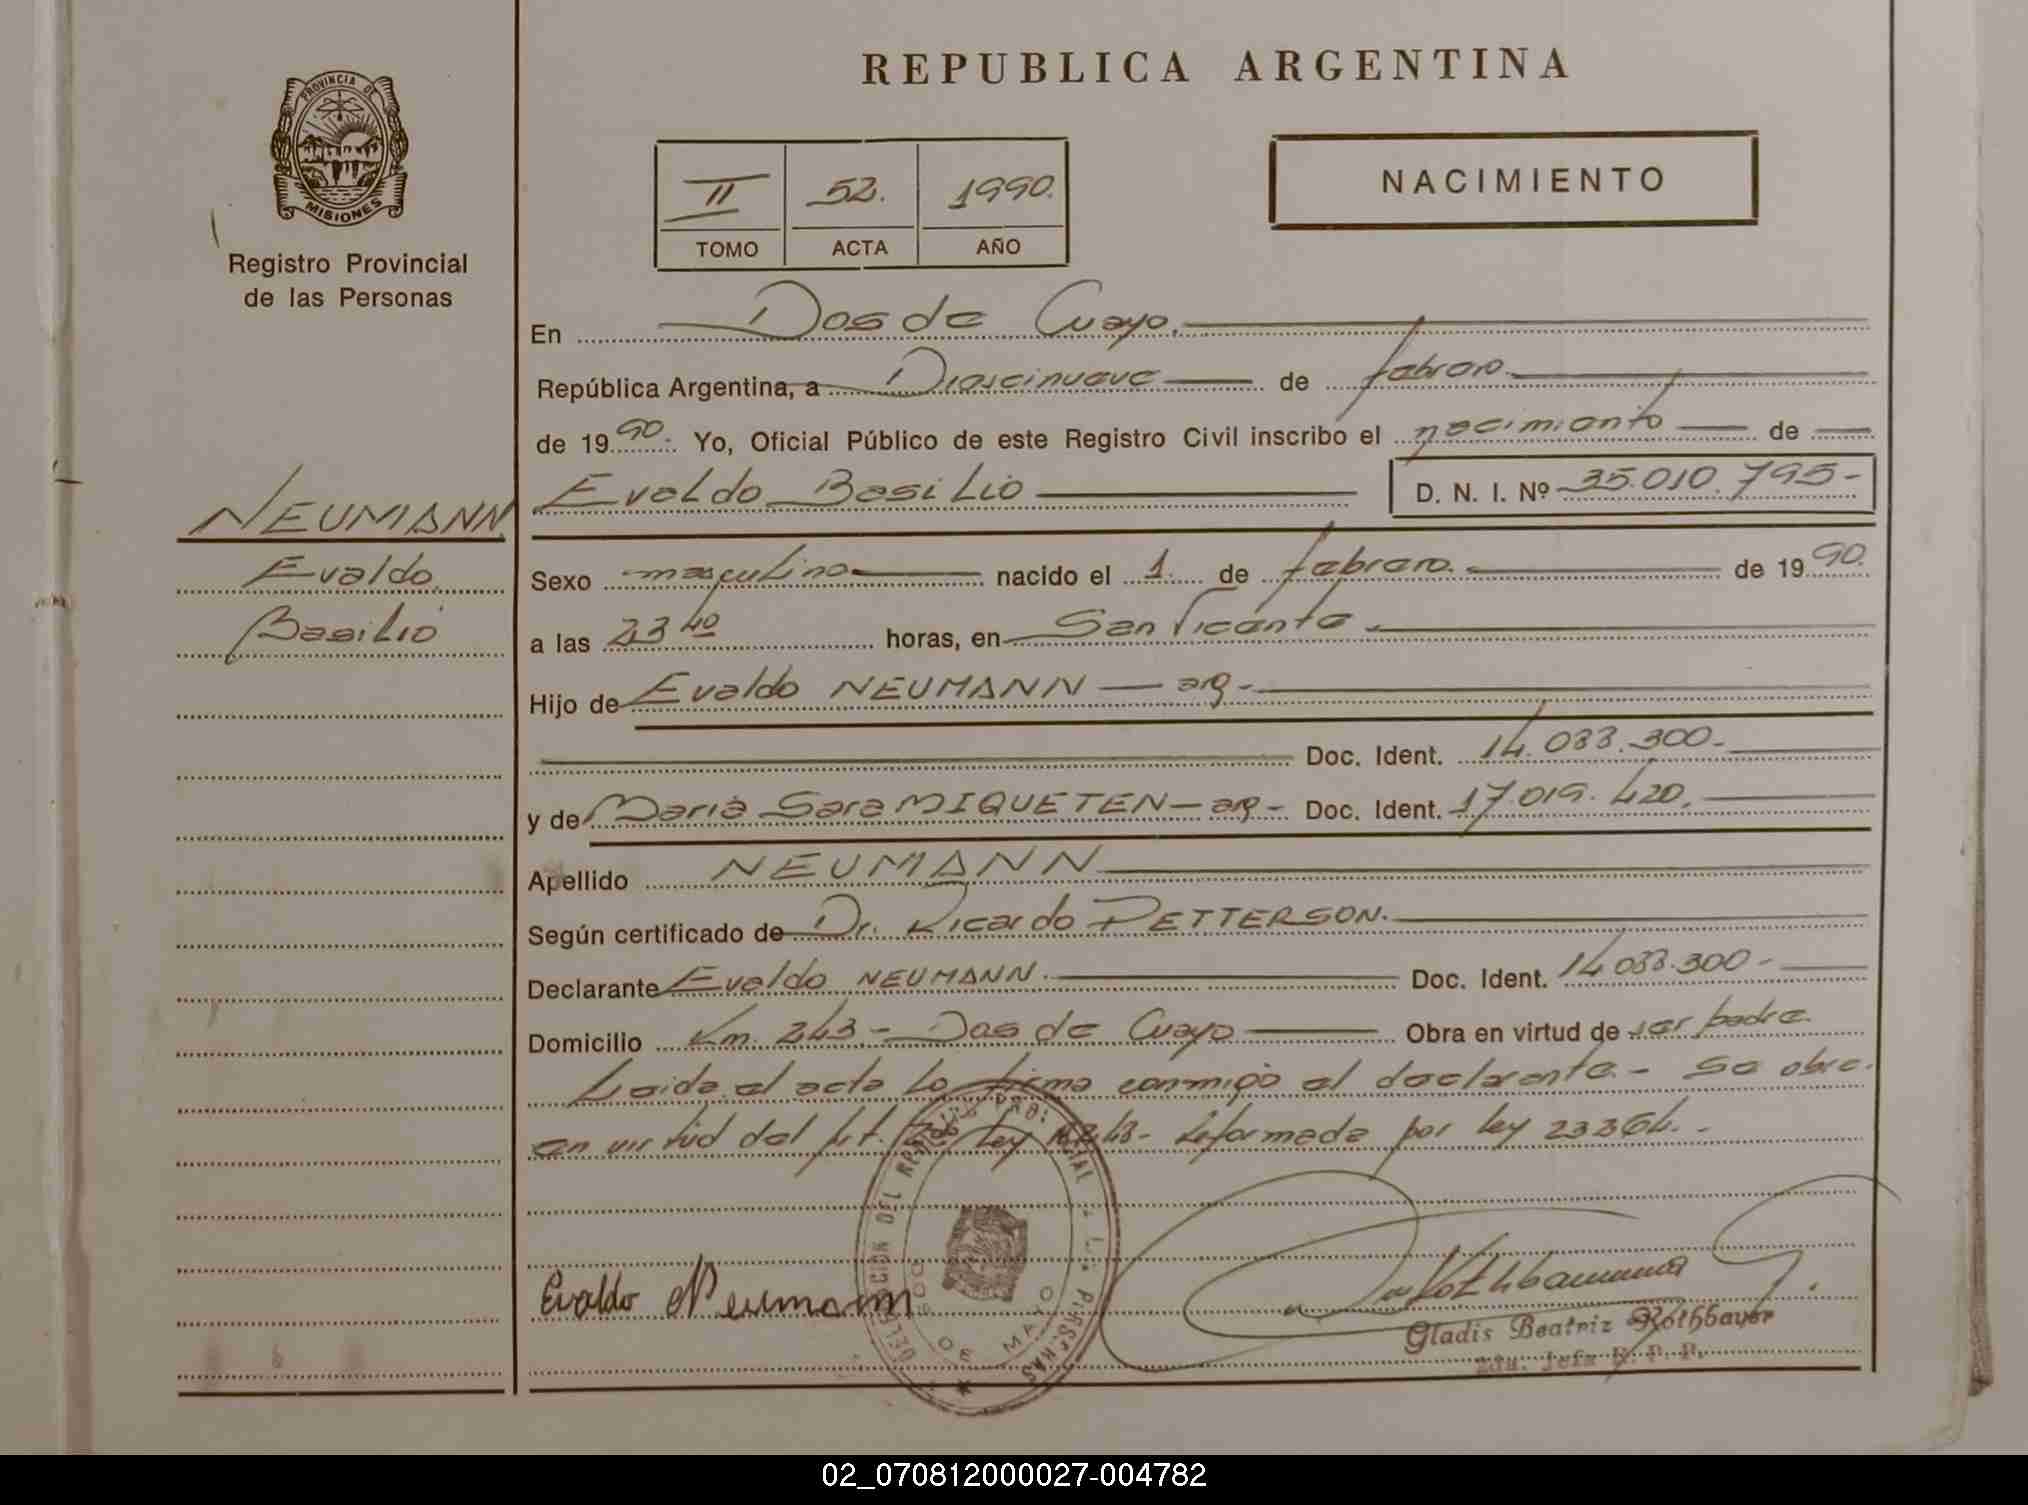 REPUBLICA ARGENTINA
PROVINCIA DE
MISIONES
Registro Provincial
de las Personas
II 52. 1990.
TOMO ACTA AÑO
NACIMIENTO
En Dos de Mayo.
República Argentina, a Diecinueve de febrero
de 1990. Yo, Oficial Público de este Registro Civil inscribo el nacimiento de
Evaldo Basilio D. N. I. Nº 35.010.795-
NEUMANN
Evaldo
Basilio
Sexo masculino nacido el 1. de febrero. de 1990.
a las 23 40 horas, en San Vicente.
Hijo de Evaldo NEUMANN — arg-
Doc. Ident. 14.033.300-
y de Maria Sara MIQUETEN — arg- Doc. Ident. 17.019.420.
Apellido NEUMANN
Según certificado de Dr. Ricardo PETTERSON.
Declarante Evaldo NEUMANN. Doc. Ident. 14.033.300-
Domicilio Km. 243- Dos de Mayo Obra en virtud de ser padre
Leida el acta la firma conmigo el declarante.- Se obra.
en virtud del Art. Ley reformada por ley 23264.-
DELEGACION DEL REGISTRO
DOS DE MAYO
Evaldo Neumann
Gladis Beatriz Rothbauer
Jefa R. P. P.
02_070812000027-004782